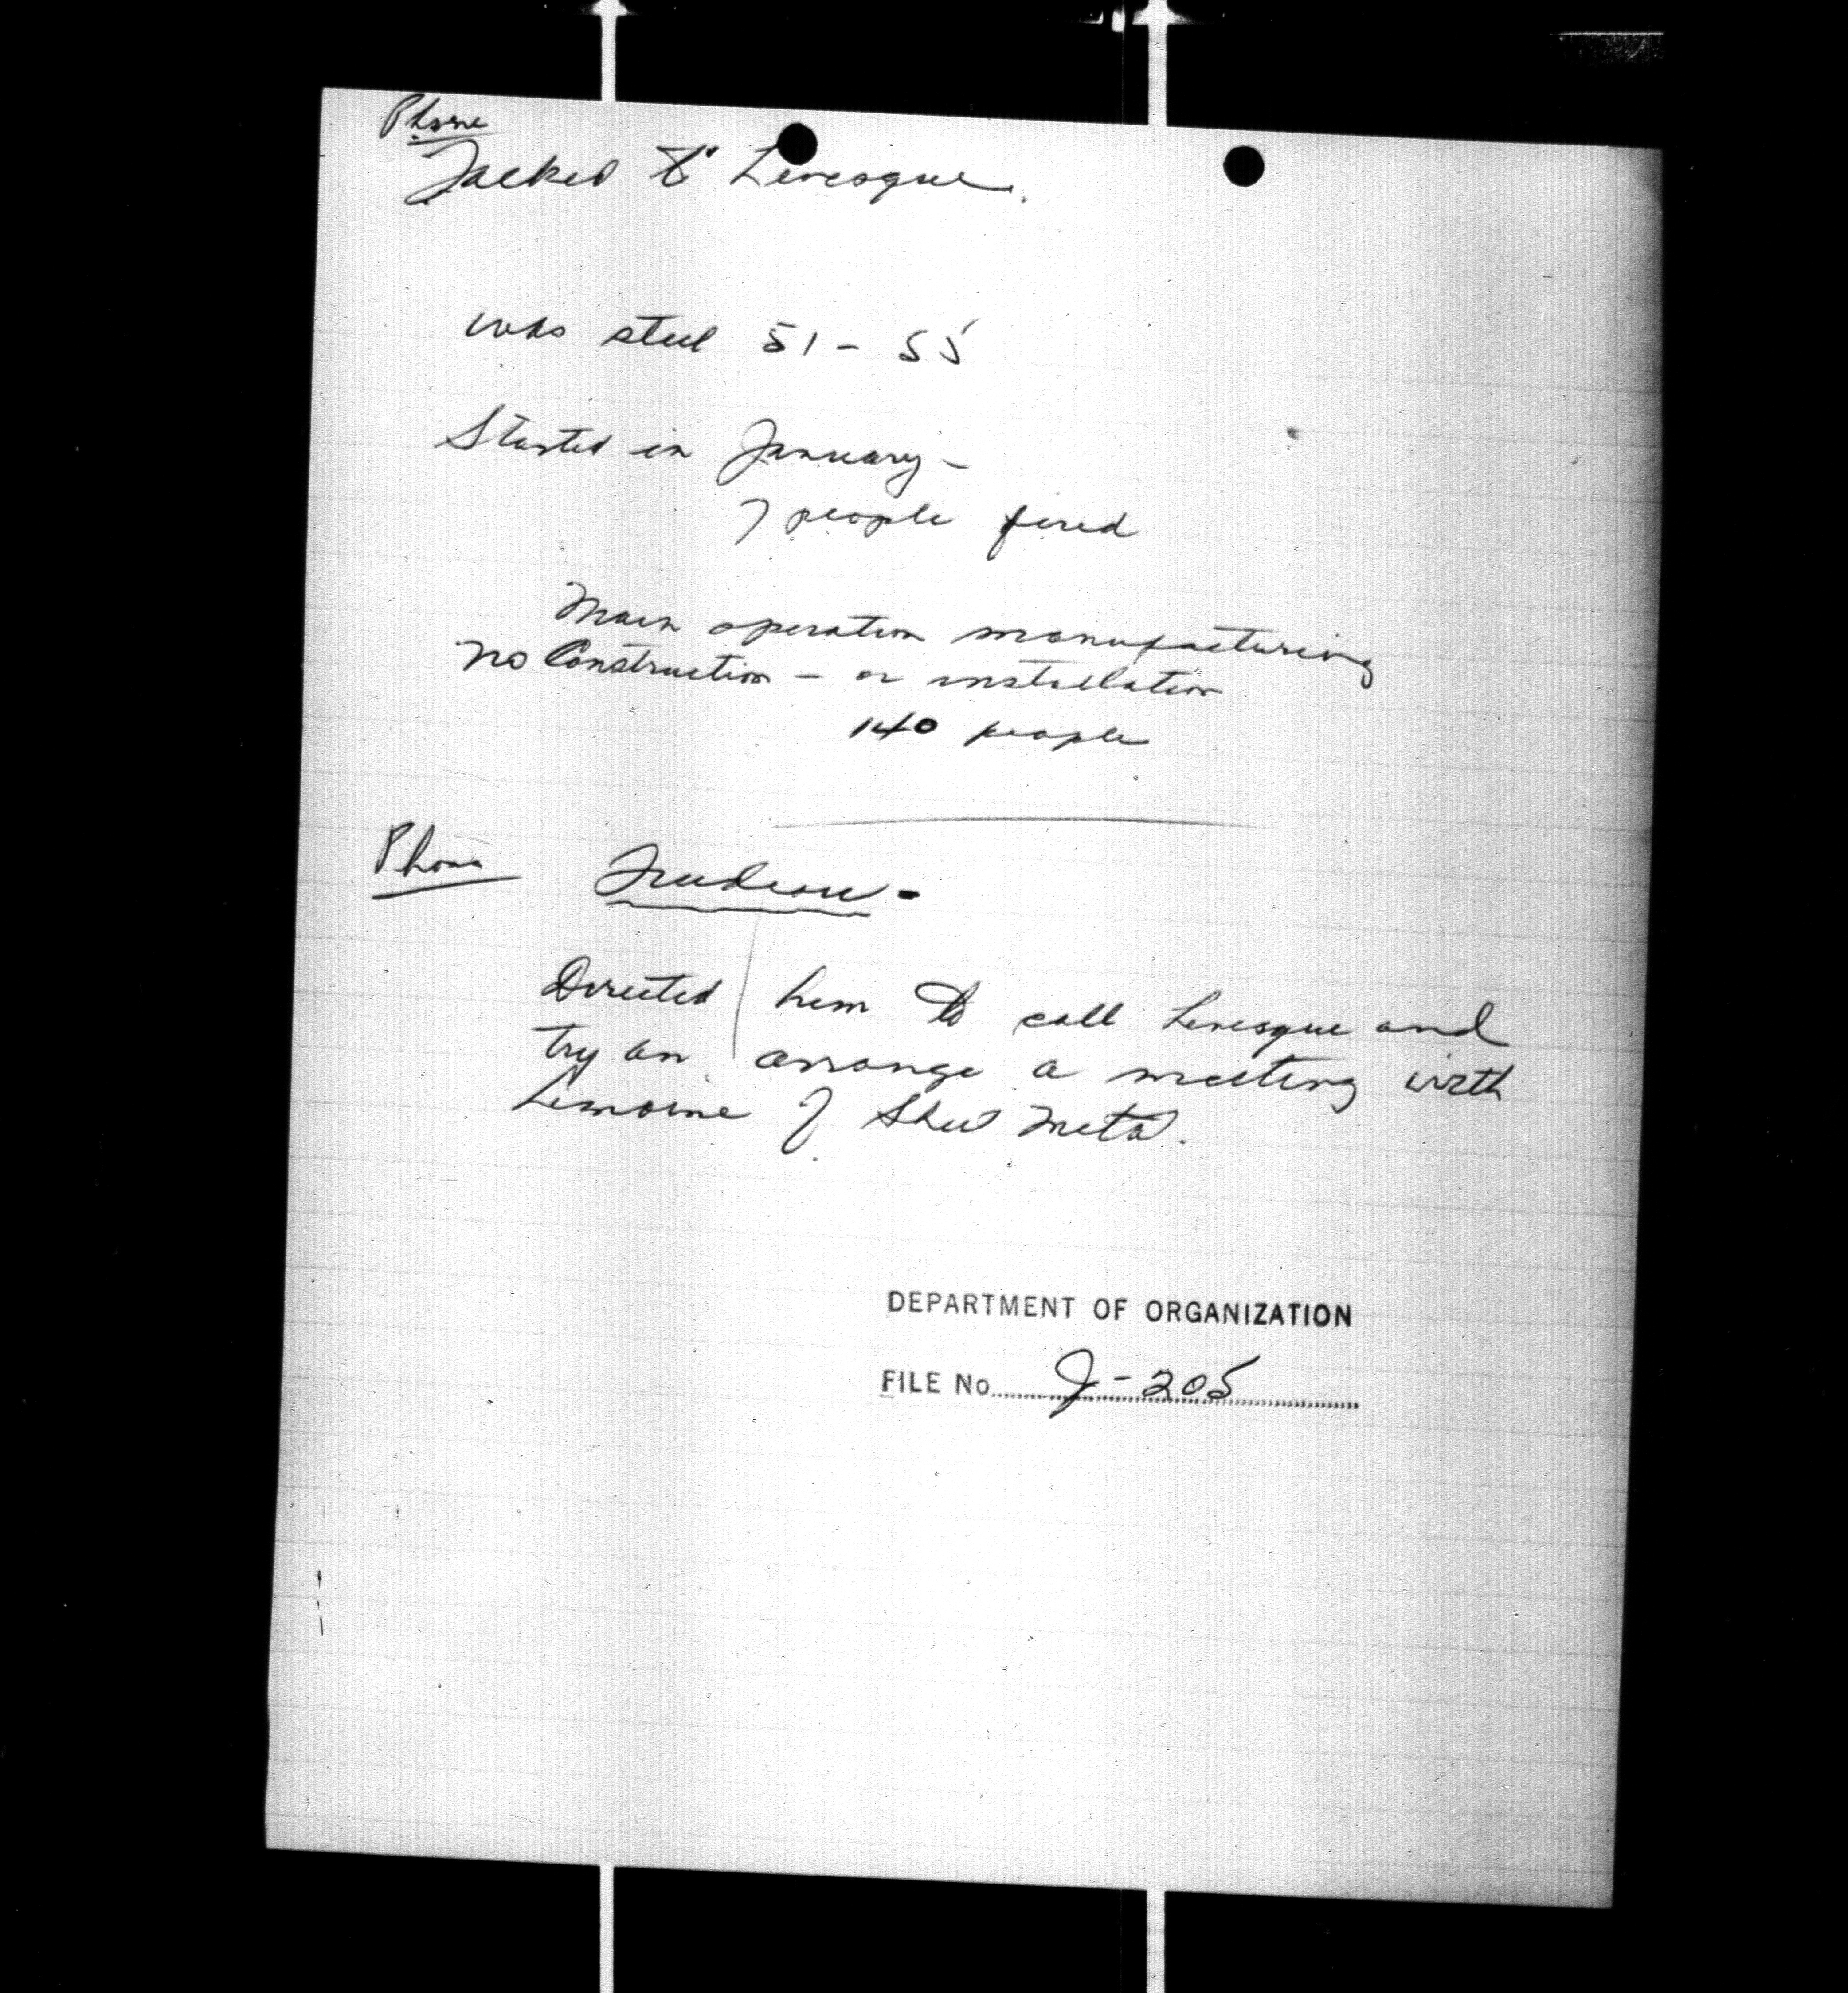 Phone
Talked to Levesque.
was steel 51-55
Started in January -
7 people fired
Main operation manufacturing
no Construction - or installation
140 people
Phone Trudeau -
Directed him to call Levesque and
try an arrange a meeting with
Lemoine of Sheet Metal.
DEPARTMENT OF ORGANIZATION
FILE No. J-205